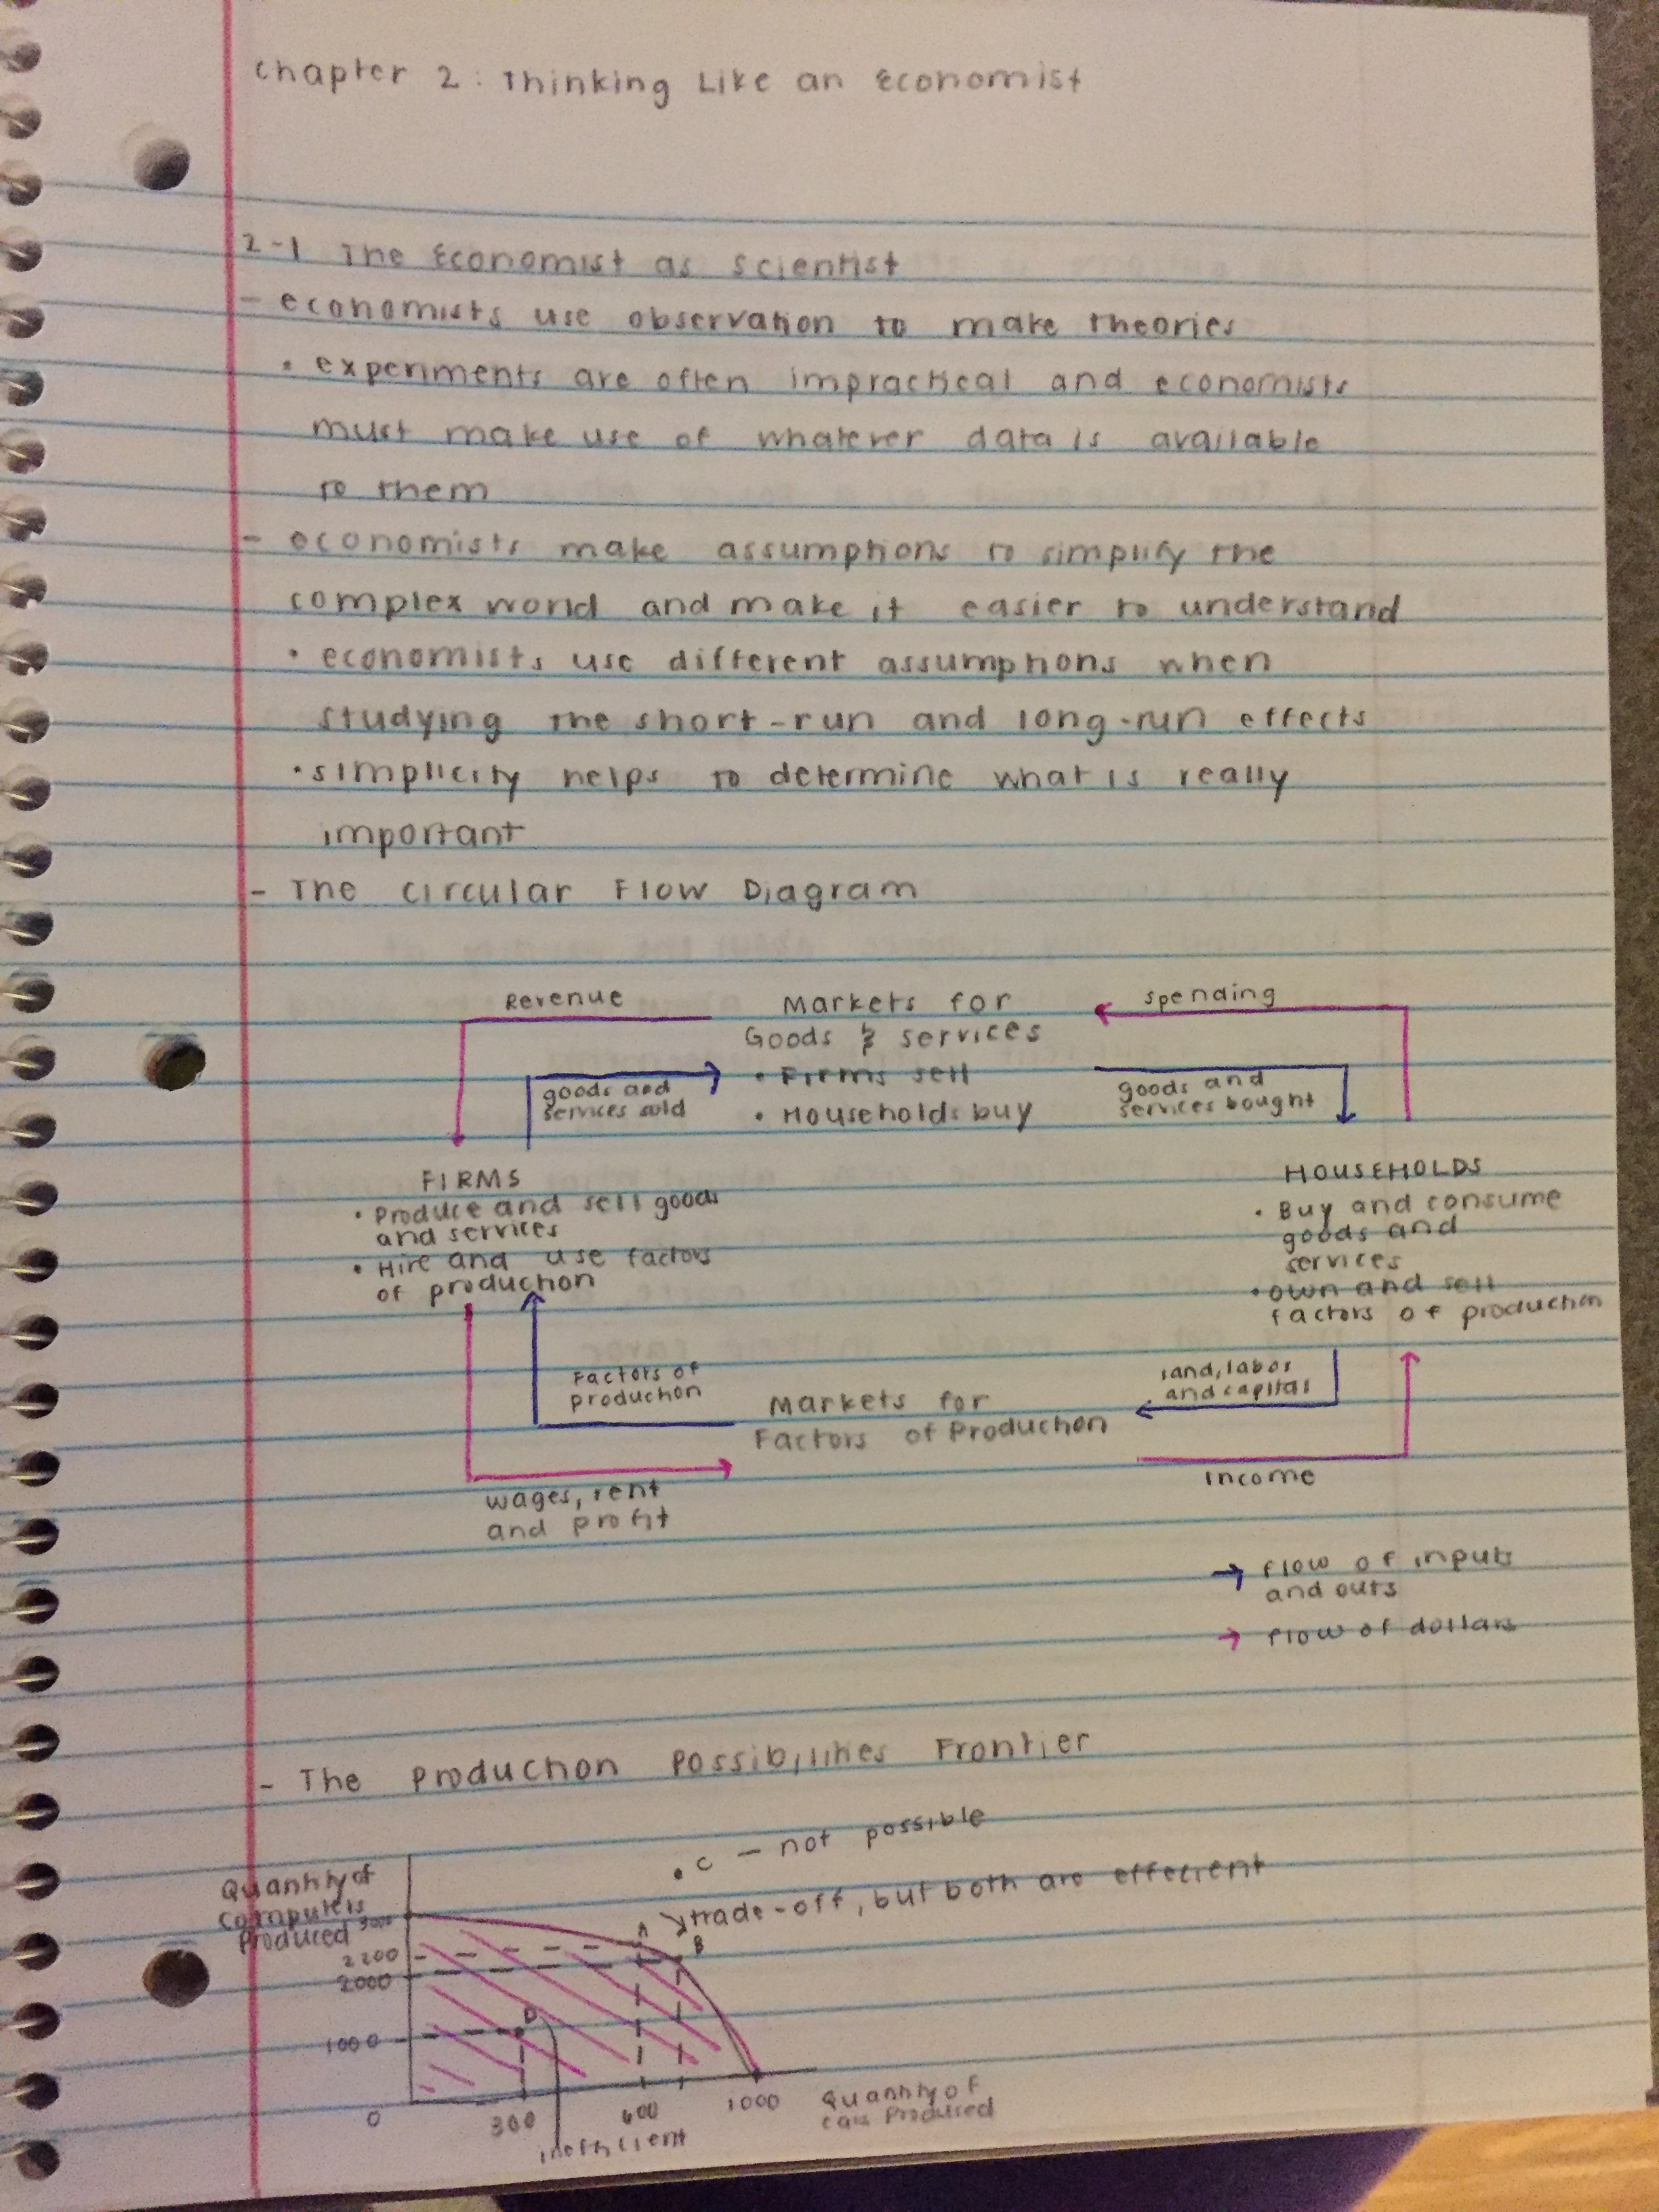 Chapter 2: Thinking Like an Economist
2-1 The Economist as Scientist
- economists use observation to make theories
• experiments are often impractical and economists
must make use of whatever data is available
to them
- economists make assumptions to simplify the
complex world and make it easier to understand
• economists use different assumptions when
studying the short-run and long-run effects
• simplicity helps to determine what is really
important
- The Circular Flow Diagram
Revenue
Markets for
Goods & Services
• Firms sell
• Households buy
spending
goods and
services sold
goods and
services bought
FIRMS
• Produce and sell goods
and services
• Hire and use factors
of production
HOUSEHOLDS
• Buy and consume
goods and
services
• own and sell
factors of production
Factors of
production
Markets for
Factors of Production
land, labor
and capital
wages, rent
and profit
Income
→ flow of inputs
and outs
→ flow of dollars
- The Production Possibilities Frontier
• C - not possible
trade-off, but both are effecient
Quantity of
Computers
Produced
3000
A
B
2200
2000
D
1000
0
300
600
1000
Quantity of
Cars Produced
inefficient